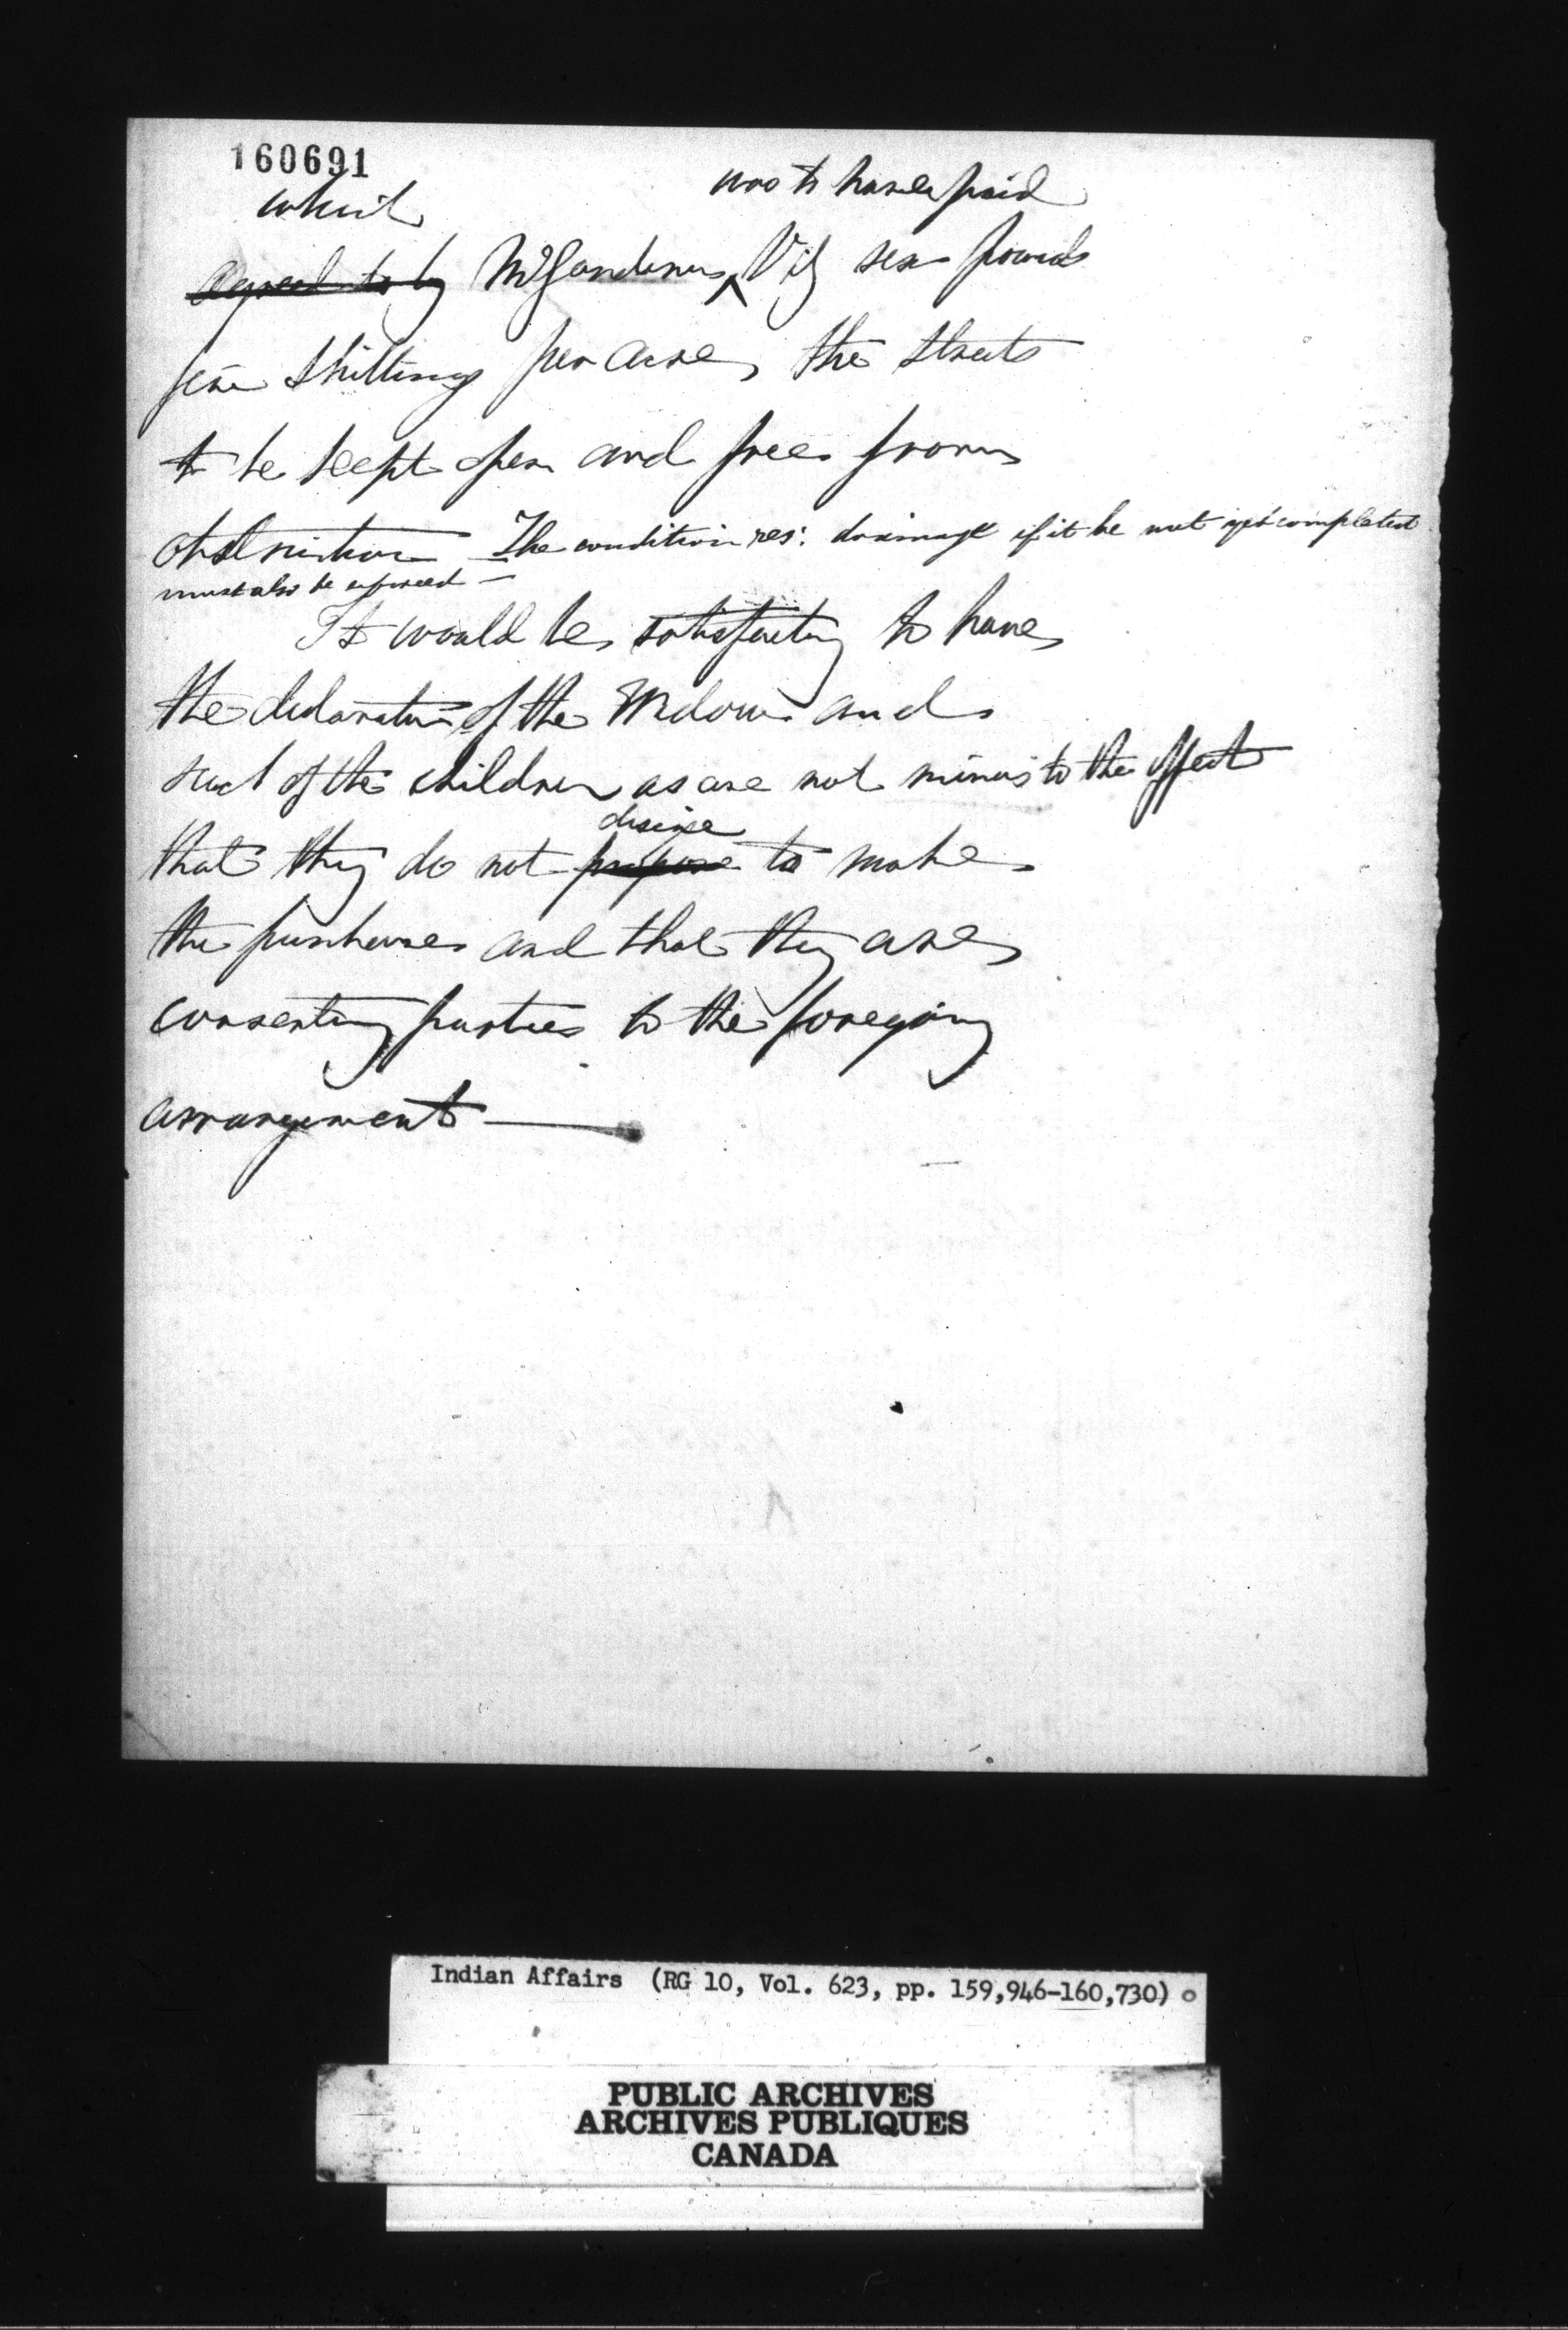 160691
which was to have paid
agreed to by Mr Gardiner Viz six pounds
five shillings per acre, the streets
to be kept open and free from
obstruction The condition res: drainage if it be not yet completed
must also be enforced —
It would be satisfactory to have
the declaration of the Widow and
such of the children as are not minors to the effect
desire
that they do not propose to make
the purchase and that they are
consenting parties to the foregoing
arrangement —
Indian Affairs (RG 10, Vol. 623, pp. 159,946-160,730)
PUBLIC ARCHIVES
ARCHIVES PUBLIQUES
CANADA